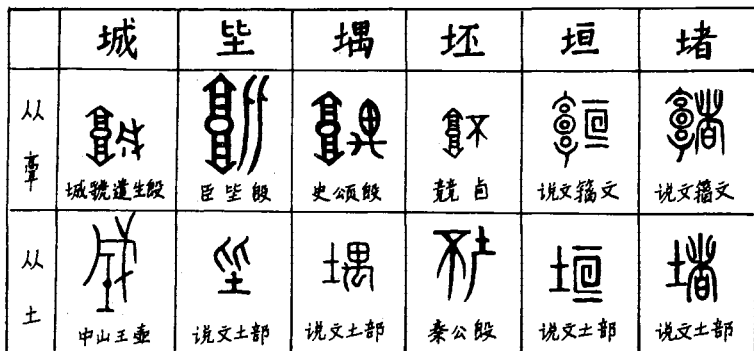 城 坒 堣 坯 垣 堵
从𩫖
城虢遣生𣪘 臣坒𣪘 史颂𣪘 競卣 说文籀文 说文籀文
从土
中山王壶 说文土部 说文土部 秦公𣪘 说文土部 说文土部